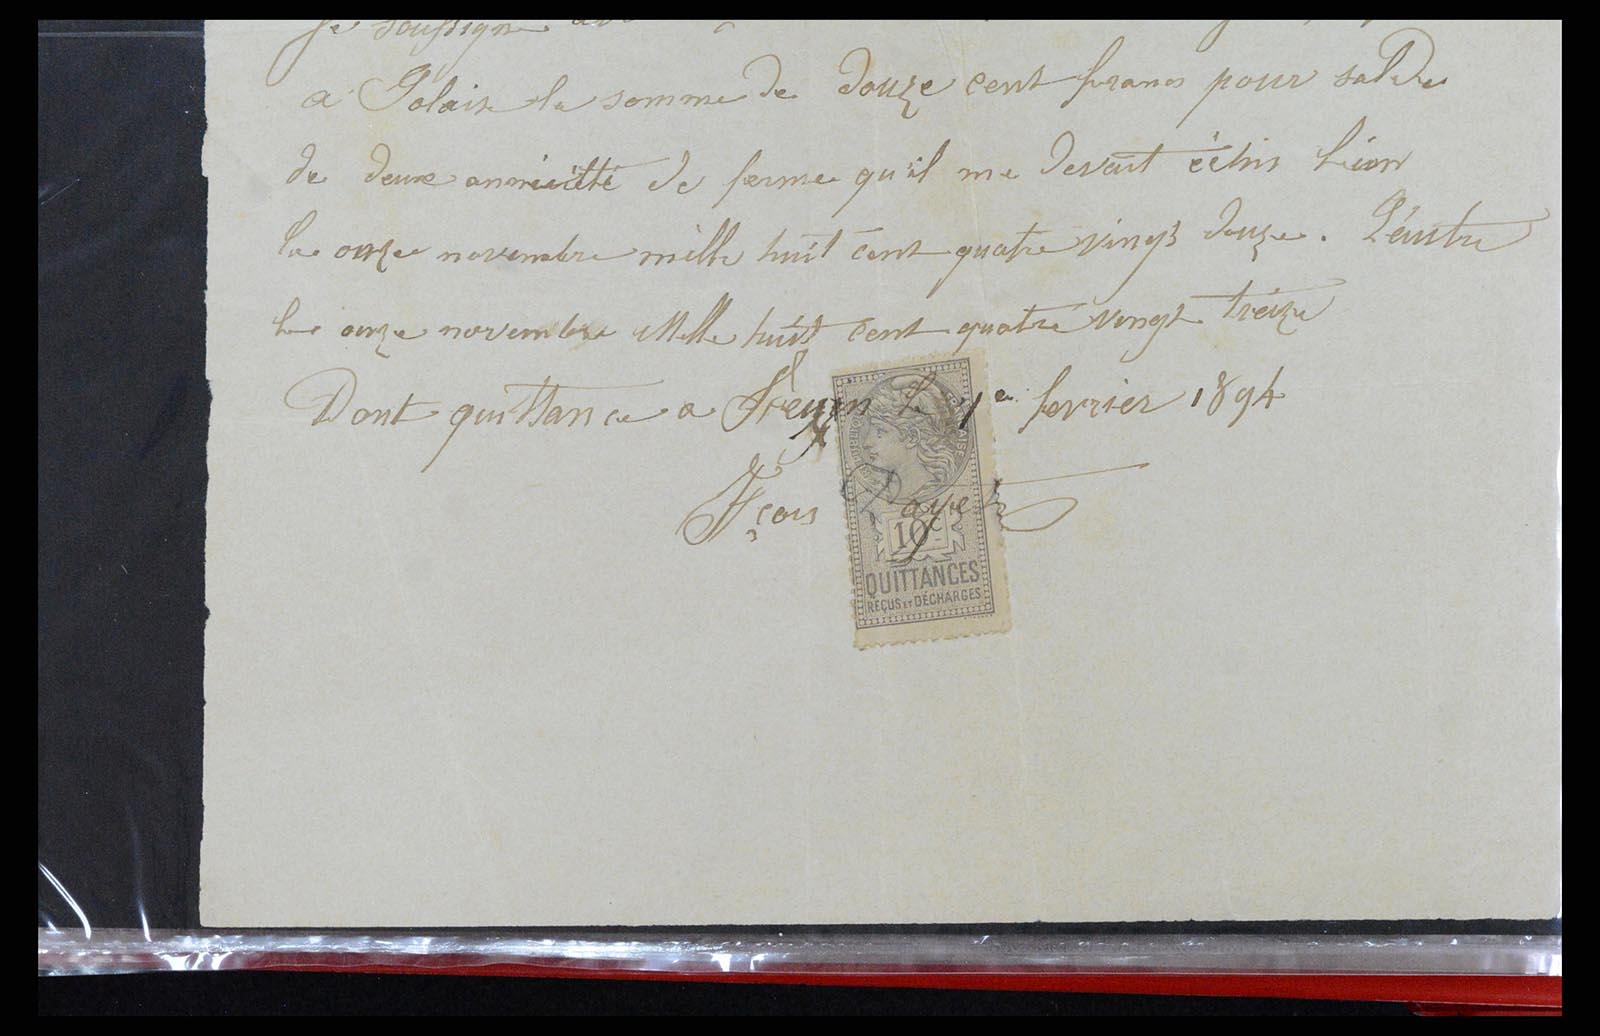 Je soussigné
a Palais la somme de douze cent francs pour solde
de deux annuité de ferme qu'il me devait échus L'ion
le onze novembre mille huit cent quatre vingt douze. L'éautre
le onze novembre Mille huit cent quatre vingt treize
Dont quittance a le 1e fevrier 1894
Fçois
RÉPUBLIQUE FRANÇAISE
10c
QUITTANCES
REÇUS ET DÉCHARGES